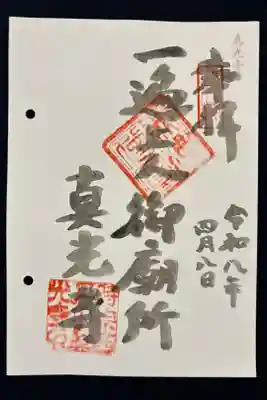 奉拝
令和八年
四月八日
一遍上人御廟所
真光寺